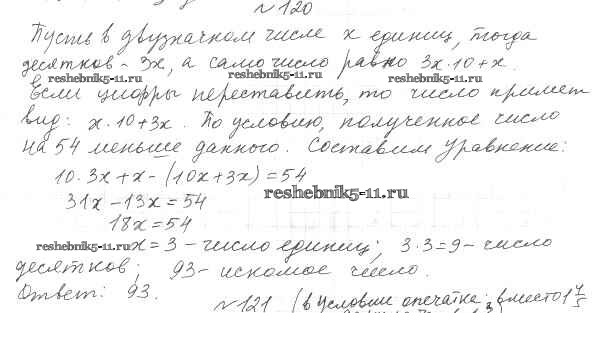 № 120
Пусть в двузначном числе x единиц, тогда
десятков - 3x, а само число равно 3x·10+x.
reshebnik5-11.ru reshebnik5-11.ru reshebnik5-11.ru
Если цифры переставить, то число примет
вид: x·10+3x. По условию, полученное число
на 54 меньше данного. Составим уравнение:
10·3x+x-(10x+3x)=54
31x-13x=54
reshebnik5-11.ru
18x=54
reshebnik5-11.ru x=3 - число единиц; 3·3=9 - число
десятков; 93 - искомое число.
Ответ: 93.
№ 121 (в условии опечатка: вместо 1